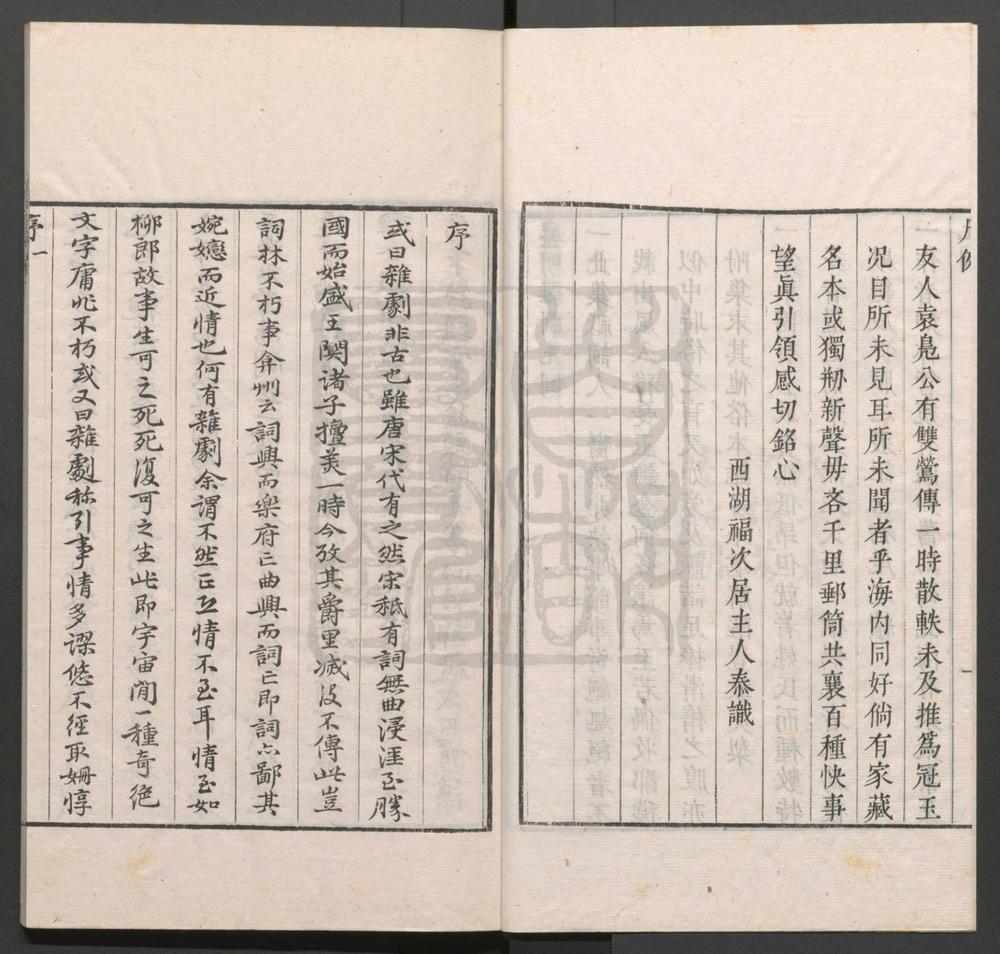 友人袁鳧公有雙鶯傳一時散軼未及推爲冠玉
况目所未見耳所未聞者乎海内同好倘有家藏
名本或獨剏新聲毋吝千里郵筒共襄百種快事
望眞引領感切銘心
西湖福次居主人泰識
序
或曰雜劇非古也雖唐宋代有之然宋秪有詞無曲浸淫至勝
國而始盛王関诸子擅美一時今攷其爵里滅沒不傳此豈
詞林不朽事弇州云詞興而樂府亡曲興而詞亡即詞亦鄙其
婉孌而近情也何有雜劇余谓不然正恐情不至耳情至如
柳郎故事生可之死死復可之生此即宇宙間一種奇絶
文字庸非不朽或又曰雜劇称引事情多謬悠不經取姍惇
序一